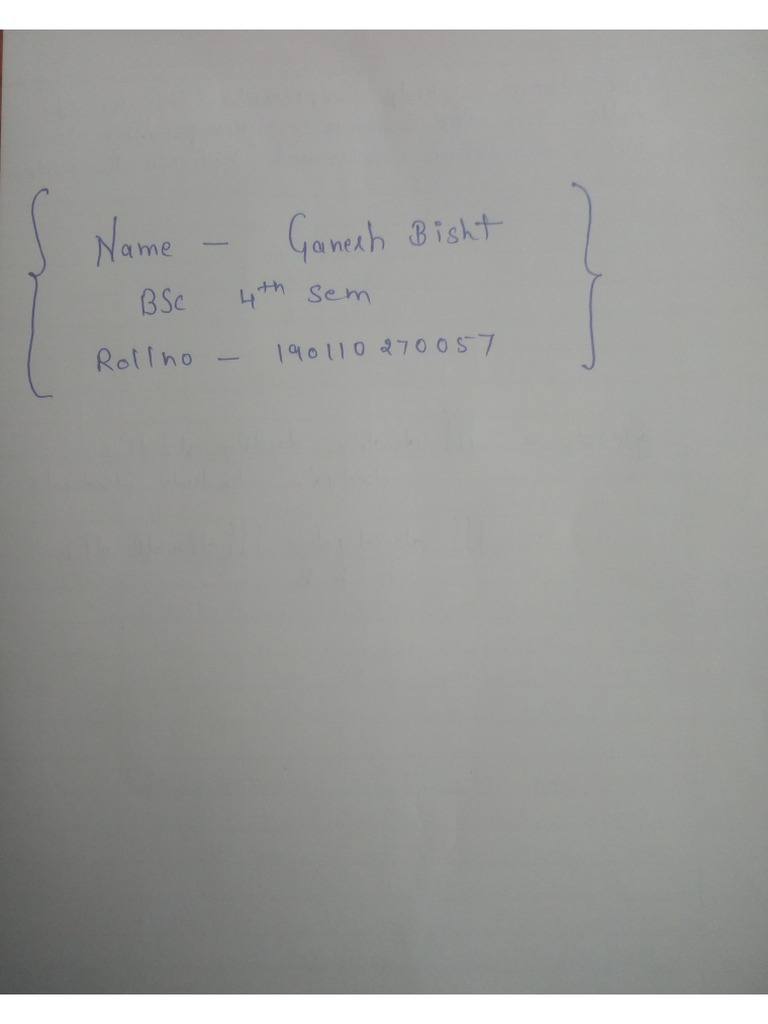 Name - Ganesh Bisht
BSc 4th Sem
Rollno - 190110270057